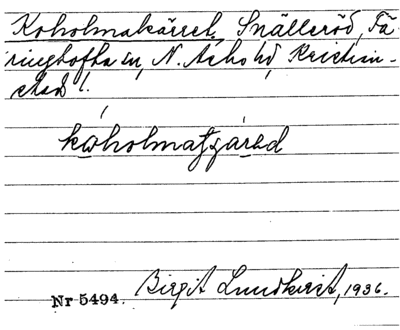 Koholmakärret, Snälleröd, Fä-
ringtofta sn, N. Åsbo hd, Kristian-
stad l.
Nr 5494. Birgit Lundkvist, 1936.